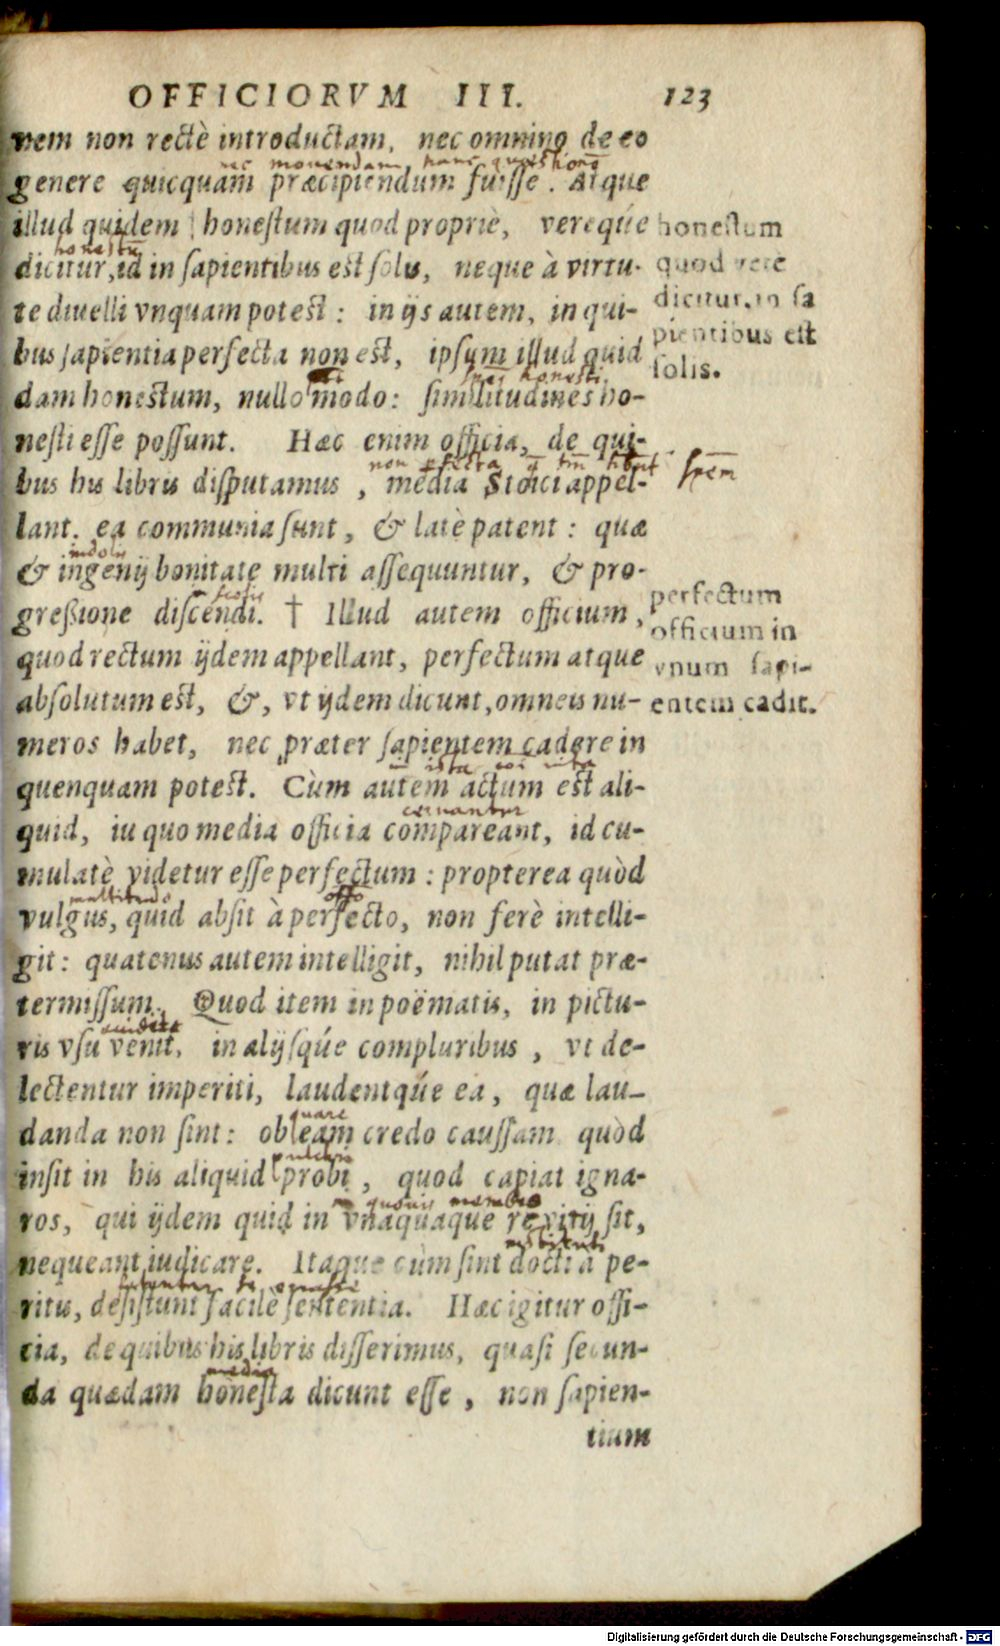 OFFICIORVM III. 123
nem non rectè introductam, nec omnino de eo
nec monendam, hanc quæstionē
genere quicquam præcipiendum fuisse. Atque
illud quidem honestum quod propriè, verequé
honestū
dicitur, id in sapientibus est solis, neque à virtu-
te diuelli vnquam potest: in ijs autem, in qui-
bus sapientia perfecta non est, ipsum illud quid
dam honestum, nullo modo: similitudines ho-
nesti esse possunt. Hæc enim officia, de qui-
bus his libris disputamus, media Stoici appel-
lant. ea communia sunt, & latè patent: quæ
indolis
& ingenij bonitate multi assequuntur, & pro-
greßione discendi. † Illud autem officium,
quod rectum ijdem appellant, perfectum atque
absolutum est, &, vt ijdem dicunt, omneis nu-
meros habet, nec præter sapientem cadere in
quenquam potest. Cùm autem actum est ali-
quid, iu quo media officia compareant, id cu-
mulatè videtur esse perfectum: propterea quòd
multitudo
vulgus, quid absit à perfecto, non ferè intelli-
git: quatenus autem intelligit, nihil putat præ-
termissum. Quod item in poëmatis, in pictu-
ris vsu venit, in alijsqúe compluribus, vt de-
lectentur imperiti, laudentqúe ea, quæ lau-
danda non sint: ob eam credo caussam quòd
insit in his aliquid probi, quod capiat igna-
ros, qui ijdem quid in vnaquaque re vitij sit,
nequeant iudicare. Itaque cùm sint docti à pe-
ritis, desistunt facilè sententia. Hæc igitur offi-
cia, de quibus his libris disserimus, quasi secun-
media
da quædam honesta dicunt esse, non sapien-
tium
honestum
quod vere
dicitur, in sa
pientibus est
solis.
perfectum
officium in
vnum sapi-
entem cadit.
Digitalisierung gefördert durch die Deutsche Forschungsgemeinschaft - DFG